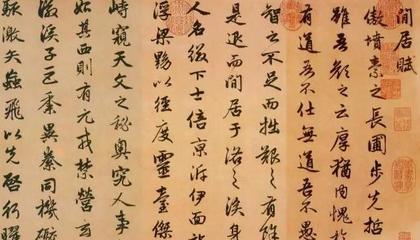 閒居賦
傲墳素之長圃步先哲
雖吾顏之云厚猶內愧於
有道吾不仕無道吾不愚
智之不足而拙艱之有餘
是退而閒居于洛之涘身
人名綴下士倍京泝伊面
浮梁黝以徑度靈臺傑
峙窺天文之秘奧究人事
始其西則有元戎禁營玄
徽溪子巨黍異絭同機礮
駭激矢蝱飛以先啓行耀